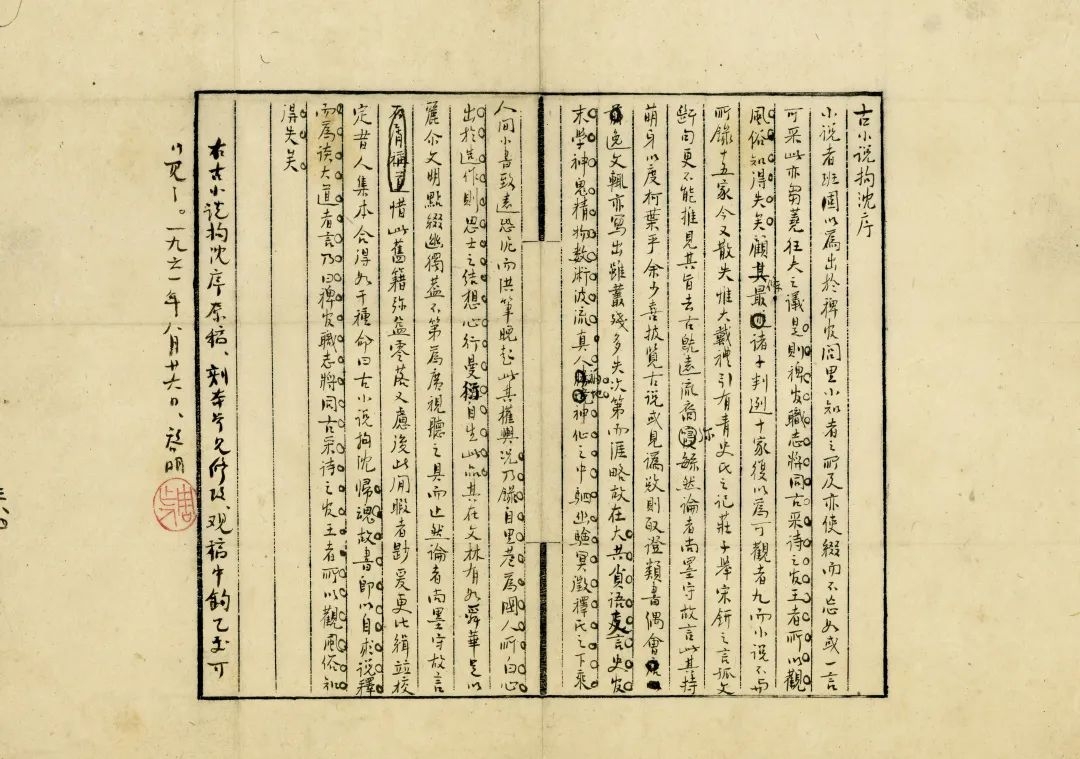 古小说拘沈序
小说者班固以為出於稗官閭里小知者之所及亦使綴而不忘如或一言
可采此亦芻蕘狂夫之議是則稗官職志將同古采诗之官王者所以觀
風俗知得失矣顧其條最諸子判列十家復以為可觀者九而小说不与
所錄十五家今又散失惟大戴禮引有青史氏之記莊子舉宋鈃之言孤文
断句更不能推見其旨去古既遠流裔弥繇然論者尚墨守故言此其持
萌芽以度柯葉乎余少喜披覽古说或見譌敚則取證類書偶會
逸文輒亦寫出雖叢殘多失次第而涯略故在大共貟语支言史官
末學神鬼精物数術波流真人福地神仙之中駟幽驗冥徵釋氏之下乘
人间小書致遠恐泥而洪筆晚起此其權輿况乃錄自里巷為國人所白心
出於造作則思士之结想心行曼衍自生此品其在文林有如舜華足以
麗尒文明點綴幽獨蓋不第為廣視聽之具而止然論者尚墨守故言
惜此舊籍弥益零落又慮後此閒暇者尟爰更比緝並校
定昔人集本合得如干種命曰古小说拘沈归魂故書即以自求说釋
而為谈大道者言乃曰稗官職志將同古采诗之官王者所以觀風俗知
得失矣
右古小说拘沈序原稿、刻本兮允修改、观稿中鈎乙处可
以见之。一九六一年八月廿六日、啓明